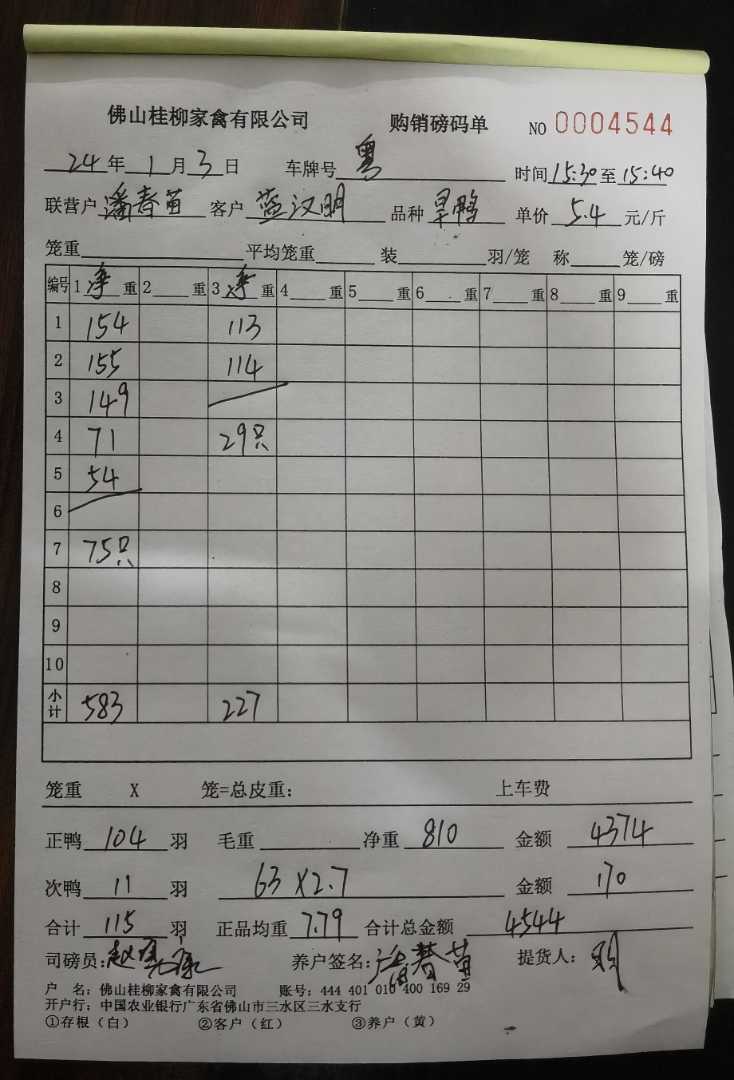 佛山桂柳家禽有限公司 购销磅码单 NO 0004544
24年1月3日 车牌号 粤 时间15:30至15:40
联营户 潘春苗 客户 蓝汉明 品种 旱鸭 单价 5.4 元/斤
笼重 平均笼重 装 羽/笼 称 笼/磅
编号 1 净 重 2 重 3 净 重 4 重 5 重 6 重 7 重 8 重 9 重
1 154 113
2 155 114
3 149
4 71 29只
5 54
6
7 75只
8
9
10
小计 583 227
笼重 X 笼=总皮重： 上车费
正鸭 104 羽 毛重 净重 810 金额 4374
次鸭 11 羽 63×2.7 金额 170
合计 115 羽 正品均重 7.79 合计总金额 4544
司磅员： 养户签名：潘春苗 提货人：明
户 名：佛山桂柳家禽有限公司 账号：444 401 010 400 169 29
开户行：中国农业银行广东省佛山市三水区三水支行
①存根（白） ②客户（红） ③养户（黄）